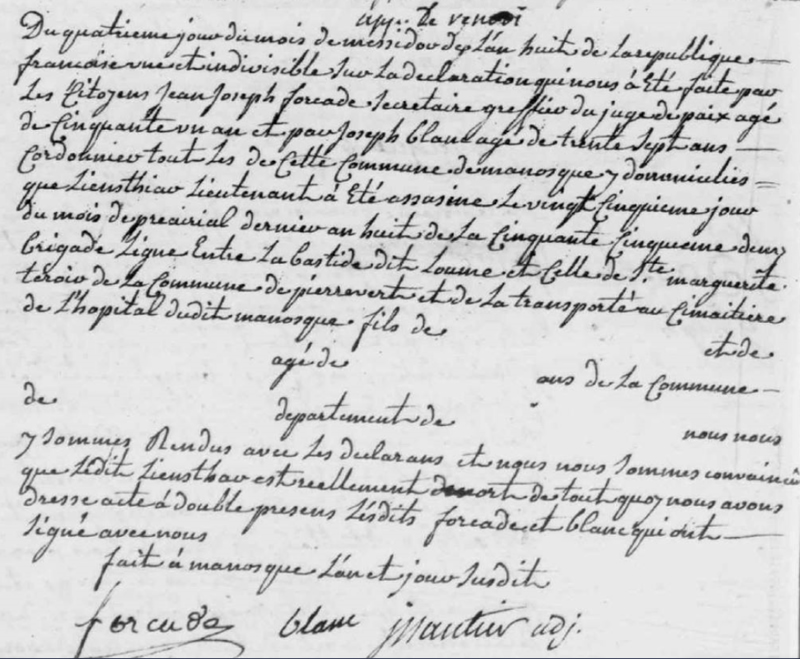 app. de
Du quatrieme jour du mois de messidor de l'an huit de la republique
francaise une et indivisible sur la declaration qui nous à été faite par
les Citoyens jean joseph forcade secretaire greffier du juge de paix agé
de Cinquante un an et par joseph blanc agé de trente sept ans
Cordonnier tout les de Cette Commune de manosque y domiciliés
que Liensthiav Lieutenant à été assasiné le vingt Cinquieme jour
du mois de preairial dernier an huit de la Cinquante Cinqueme demy
brigade Ligne Entre La bastide dit Loume et Celle de Ste marguerite
teroir de la Commune de pierrevert et de la transporté au Cimaitiere
de l'hopital dudit manosque fils de
et de
agé de ans de la Commune
de departement de nous nous
y sommes Rendus avec Les declarans et nous nous sommes convaincû
que Ledit Liensthav est reellement mort de tout quoy nous avons
dresse acte à double presens Lesdits forcade et blanc qui ont
signé avec nous
fait à manosque L'an et jour susdit
forcade blanc adj.